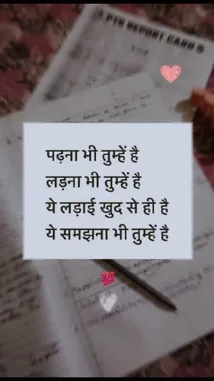 PTB REPORT CARD
पढ़ना भी तुम्हें है
लड़ना भी तुम्हें है
ये लड़ाई खुद से ही है
ये समझना भी तुम्हें है